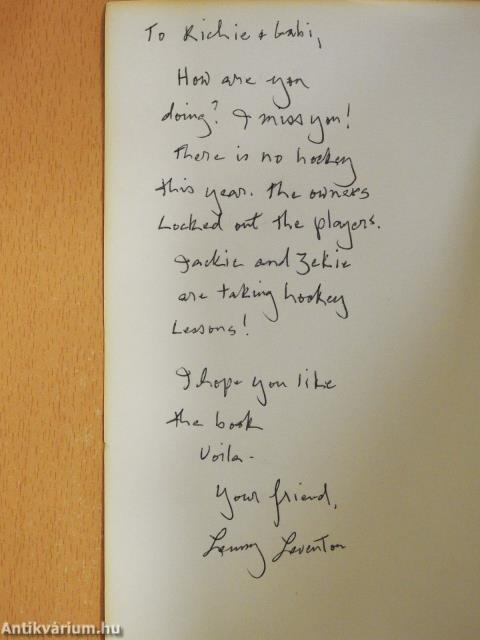 To Richie & Gabi,
How are you
doing? I miss you!
There is no hockey
this year. The owners
Locked out the players.
Jackie and Zekie
are taking hockey
Lessons!
I hope you like
the book
Voila-
Your friend,
Lenny Leventon
Antikvárium.hu